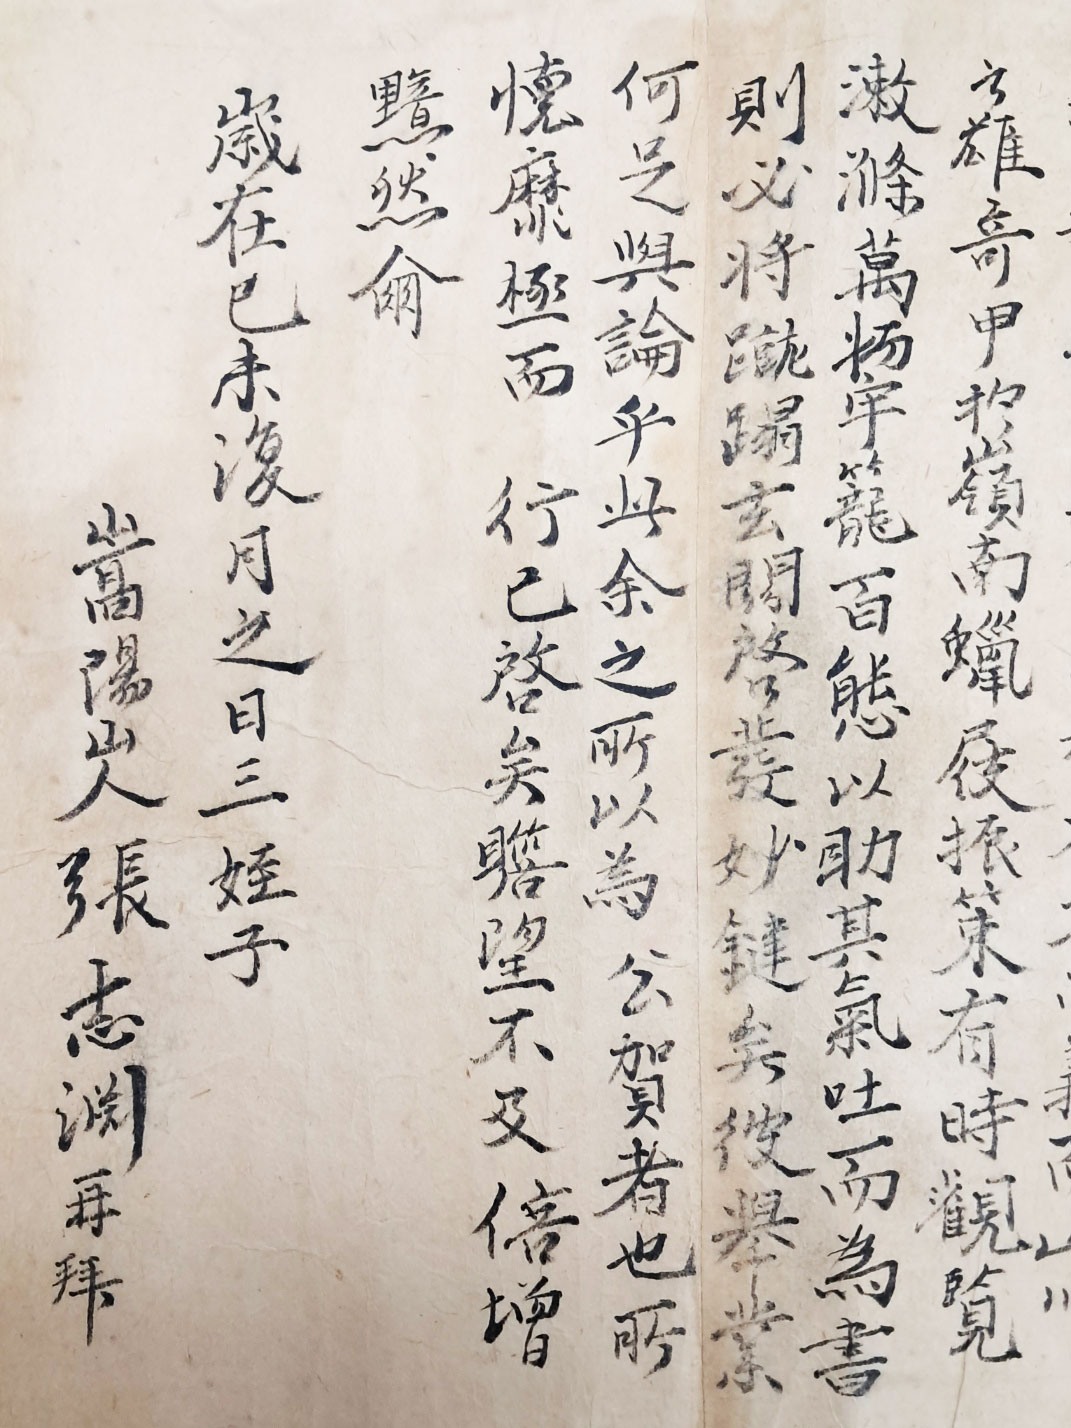 之雄奇甲於嶺南蠟屐振策有時觀覽
漱滌萬物牢籠百態以助其氣吐而為書
則必將蹴蹋玄關啓發妙鍵矣彼舉業
何足與論乎此余之所以為 公賀者也所
懷靡極而 行已啓矣瞻望不及 倍增
黯然爾
歲在己未復月之日三姪子
嵩陽山人 張志淵 再拜